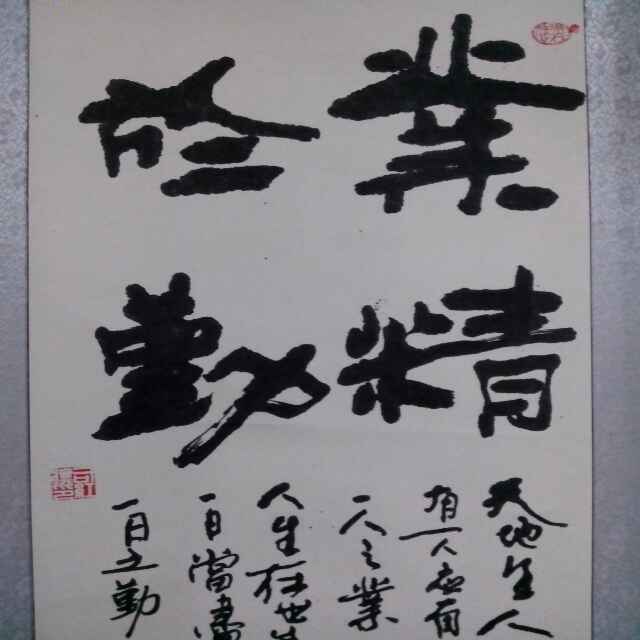 業精
於勤
天地生人
有一人應有
一人之業
人生在世生
一日當盡
一日之勤